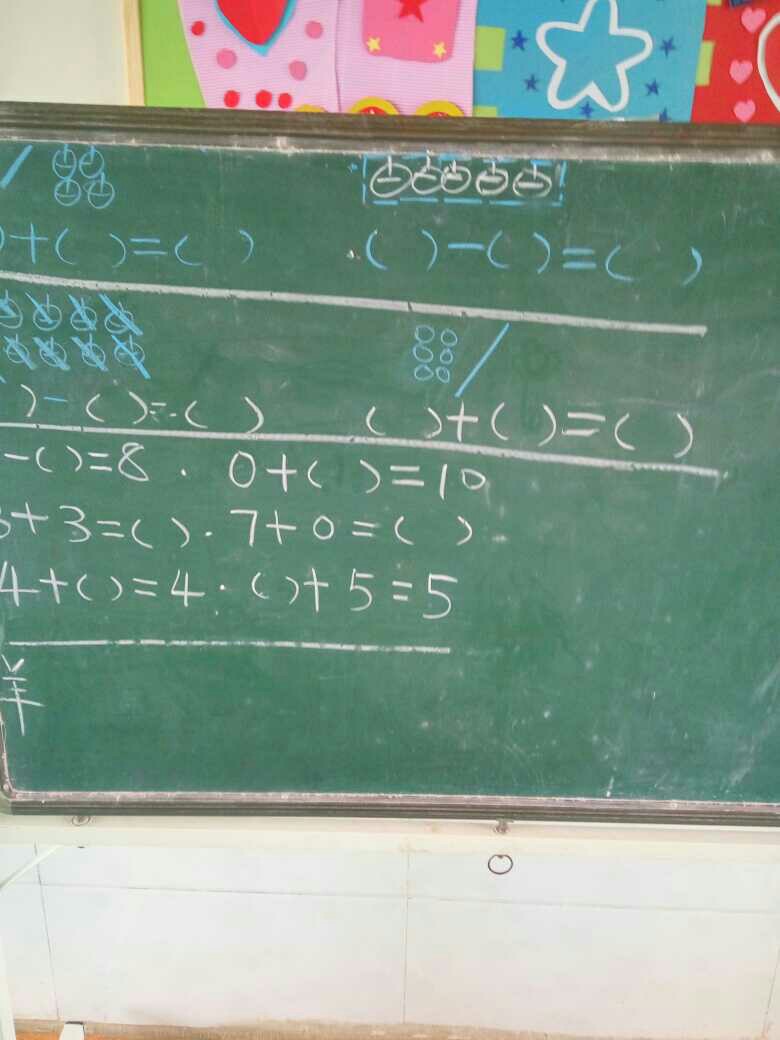 )+( )=( ) ( )-( )=( )
)-( )=( ) ( )+( )=( )
-( )=8 · 0+( )=10
3+3=( ) · 7+0=( )
4+( )=4 · ( )+5=5
羊